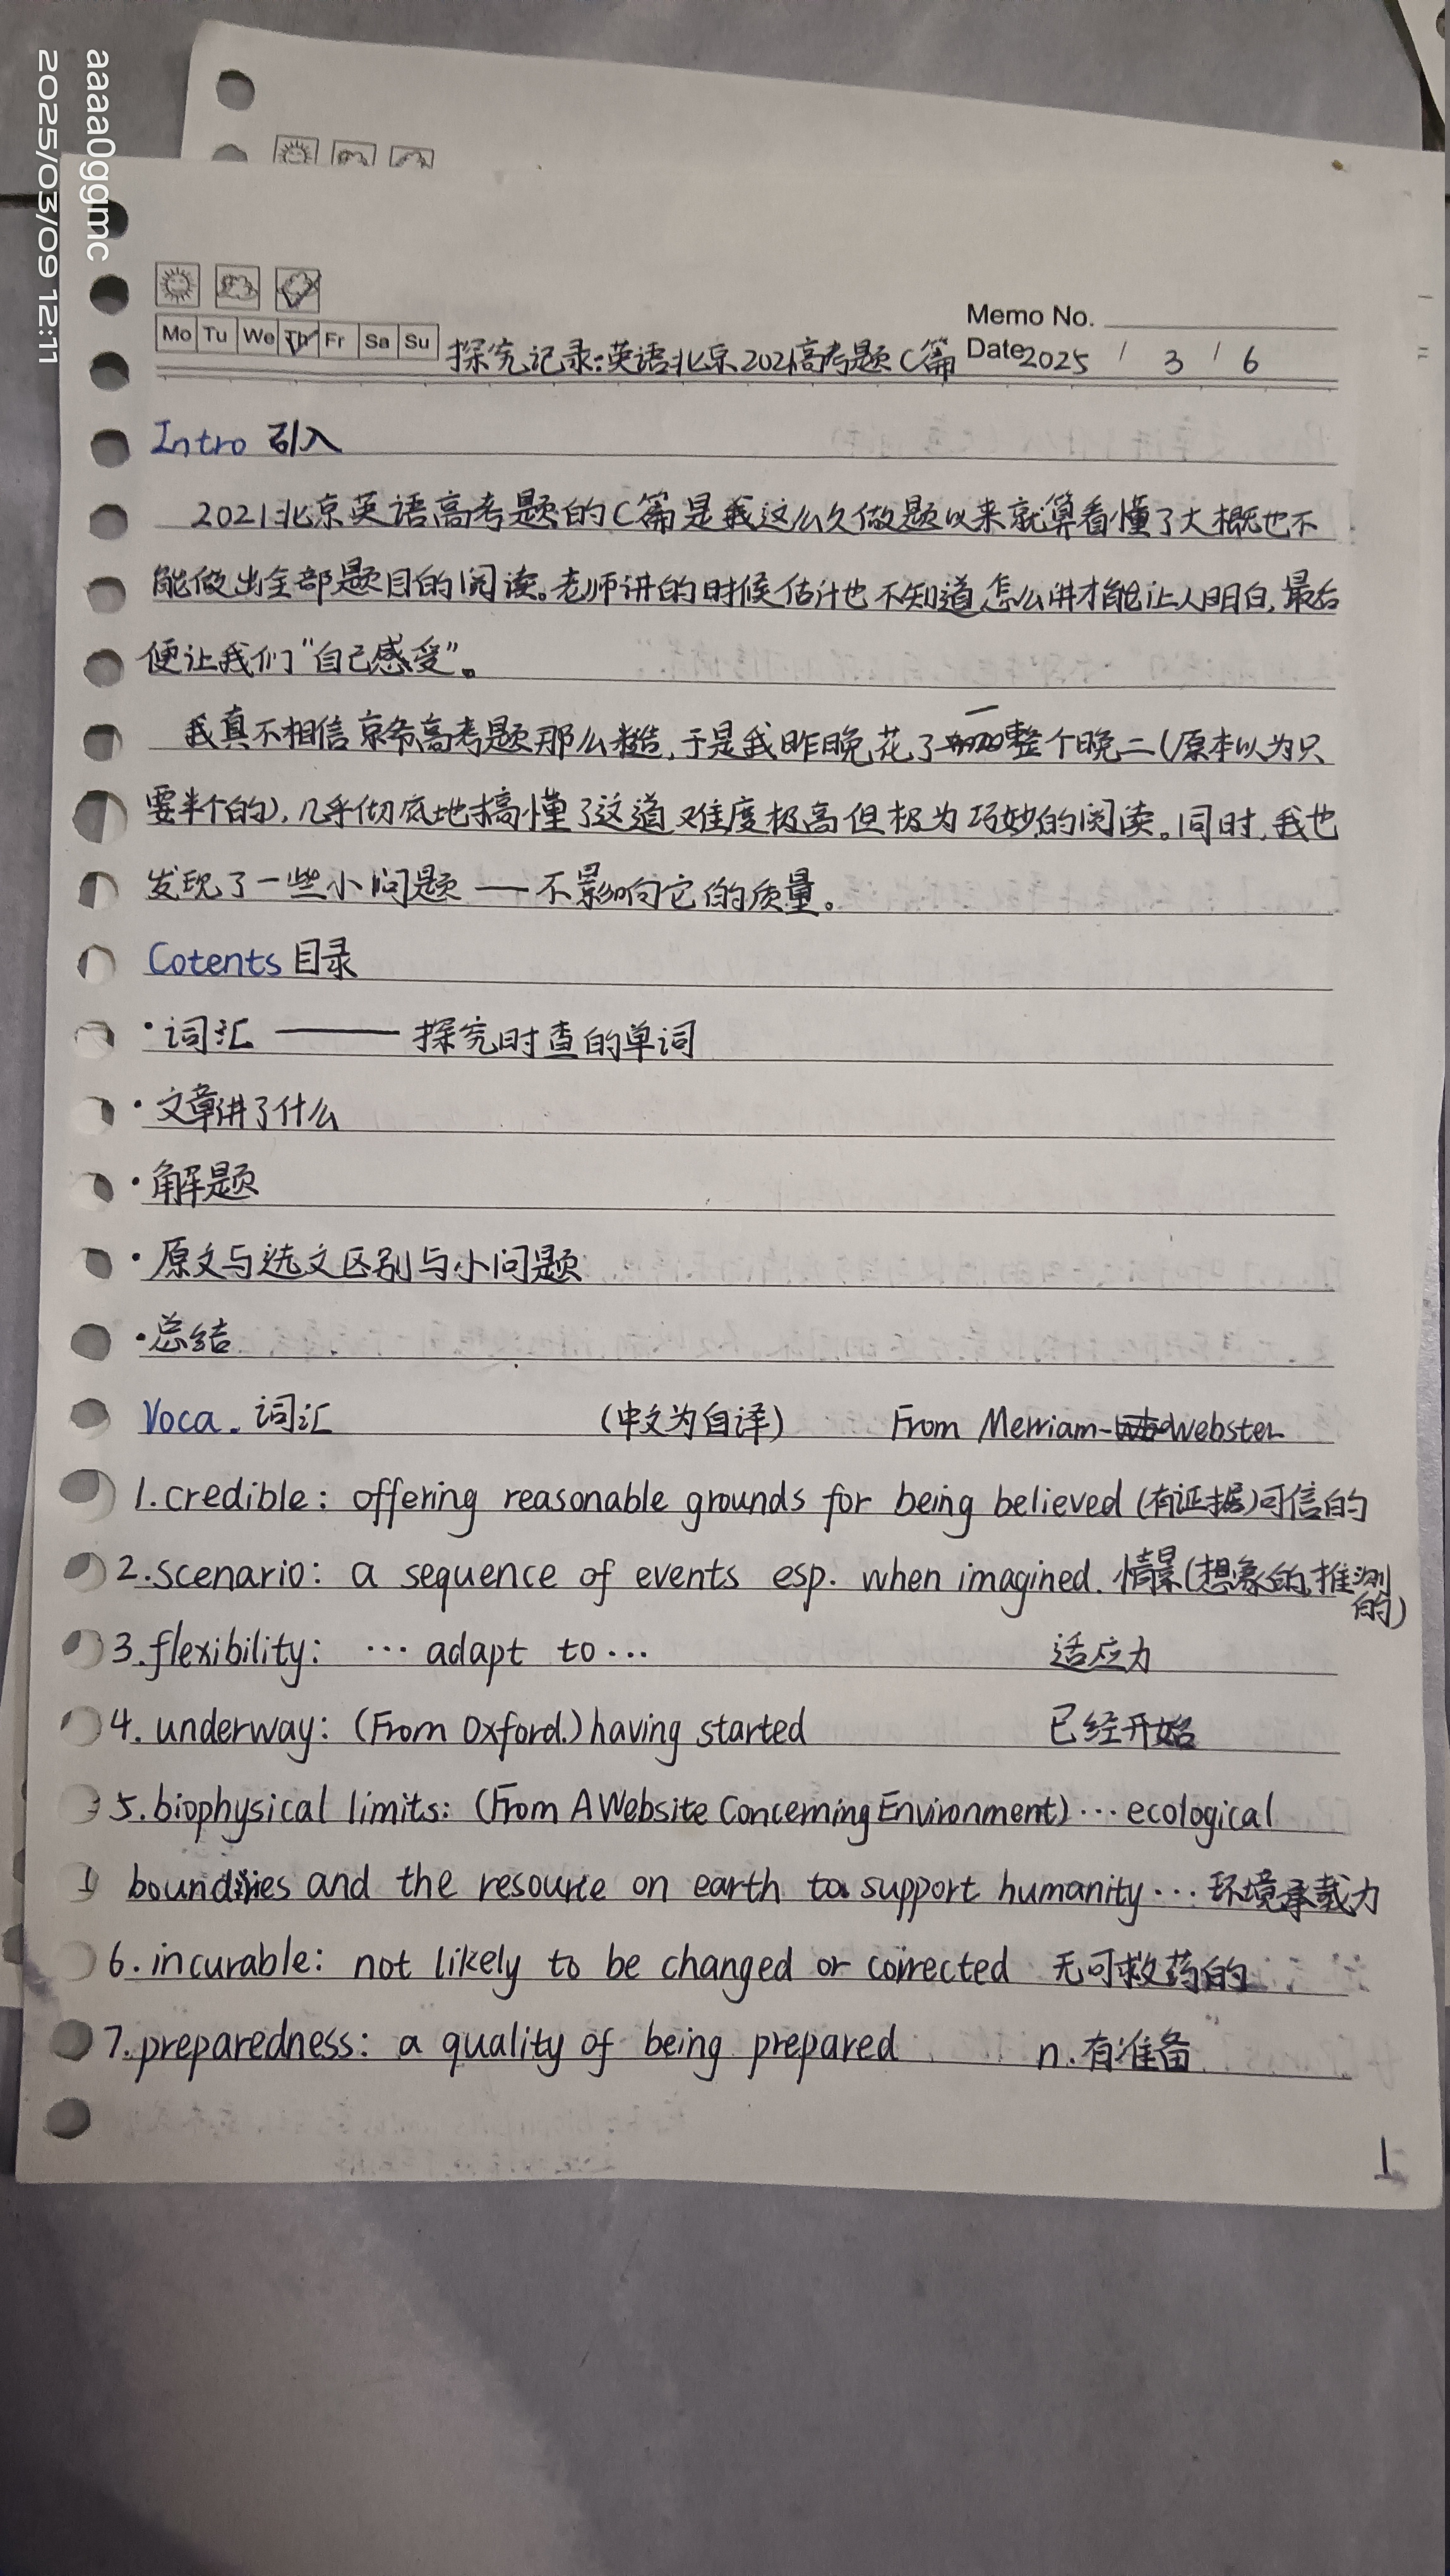 aaaa0ggmc
2025/03/09 12:11
Memo No.
Mo Tu We Th Fr Sa Su
探究记录:英语北京2021高考题C篇
Date 2025 / 3 / 6
Intro 引入
2021北京英语高考题的C篇是我这么久做题以来就算看懂了大概也不
能做出全部题目的阅读。老师讲的时候估计也不知道怎么讲才能让人明白,最后
便让我们“自己感受”。
我真不相信京爷高考题那么糙,于是我昨晚花了一整个晚二(原本以为只
要半个的),几乎彻底地搞懂了这道难度极高但极为巧妙的阅读。同时,我也
发现了一些小问题——不影响它的质量。
Cotents 目录
·词汇 ——— 探究时查的单词
·文章讲了什么
·解题
·原文与选文区别与小问题
·总结
Voca. 词汇 (中文为自译) From Merriam-Webster
1.credible: offering reasonable grounds for being believed (有证据)可信的
2.scenario: a sequence of events esp. when imagined. 情景(想象的,推测的)
3.flexibility: … adapt to … 适应力
4. underway: (From Oxford.) having started 已经开始
5.biophysical limits: (From A Website Concerning Environment) … ecological
and the resource on earth to support humanity … 环境承载力
6. incurable: not likely to be changed or corrected 无可救药的
7.preparedness: a quality of being prepared n.有准备
1